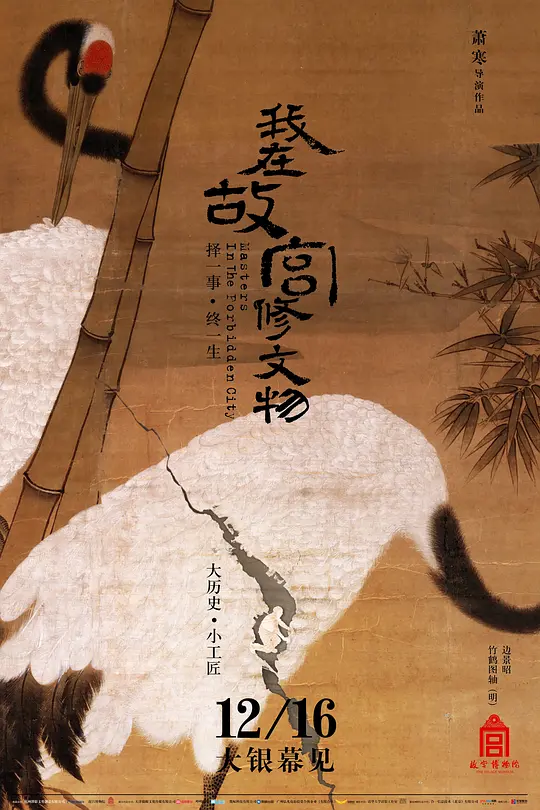 萧寒导演作品
我在故宫修文物
Masters
In The Forbidden City
择一事·终一生
大历史·小工匠
边景昭
竹鹤图轴(明)
12/16
大银幕见
故宫博物院